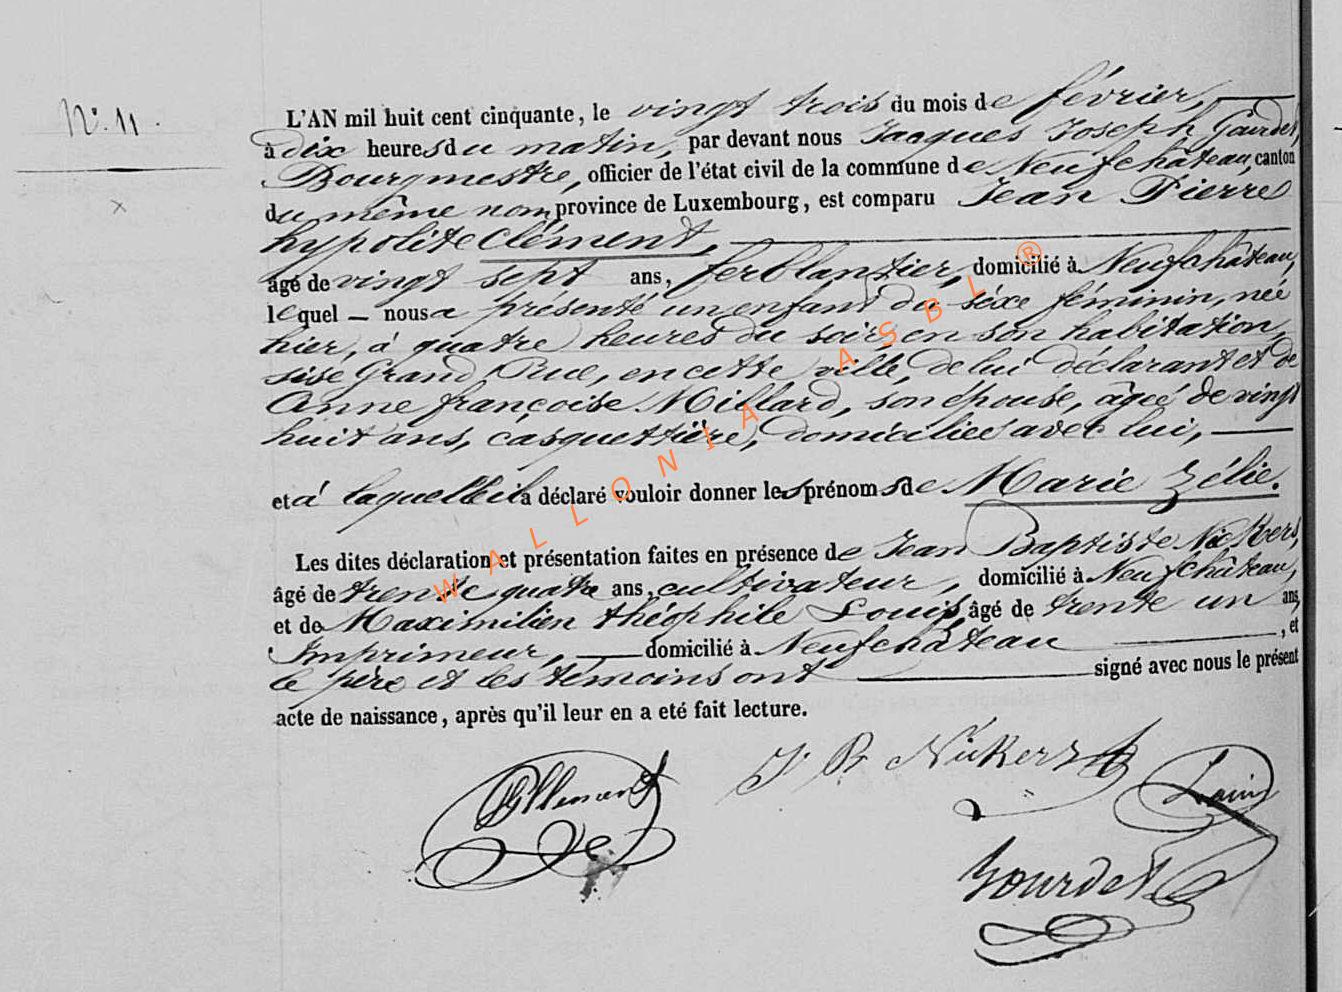 N°. 11.
L'AN mil huit cent cinquante, le vingt trois du mois de février,
à dix heures du matin, par devant nous Jacques Joseph Gourdet,
Bourgmestre, officier de l'état civil de la commune de Neufchâteau, canton
du même nom, province de Luxembourg, est comparu Jean Pierre
hypolite Clément,
âgé de vingt sept ans, ferblantier, domicilié à Neufchâteau,
lequel — nous a présenté un enfant du séxe féminin, née
hier, à quatre heures du soir, en son habitation,
sise Grand Rue, en cette ville, de lui déclarant et de
Anne françoise Millard, son épouse, âgée de vingt
huit ans, casquettière, domiciliée avec lui,
et à laquelle il a déclaré vouloir donner les prénoms de Marie Zélie.
Les dites déclaration et présentation faites en présence de Jean Baptiste Nickers,
âgé de trente quatre ans, cultivateur, domicilié à Neufchâteau,
et de Maximilien théophile Louis, âgé de trente un ans,
Imprimeur, domicilié à Neufchâteau, et
le père et les témoins ont signé avec nous le présent
acte de naissance, après qu'il leur en a eté fait lecture.
Clement
J. B. Nickers
Louis
Gourdet
WALLONIA ASBL ®